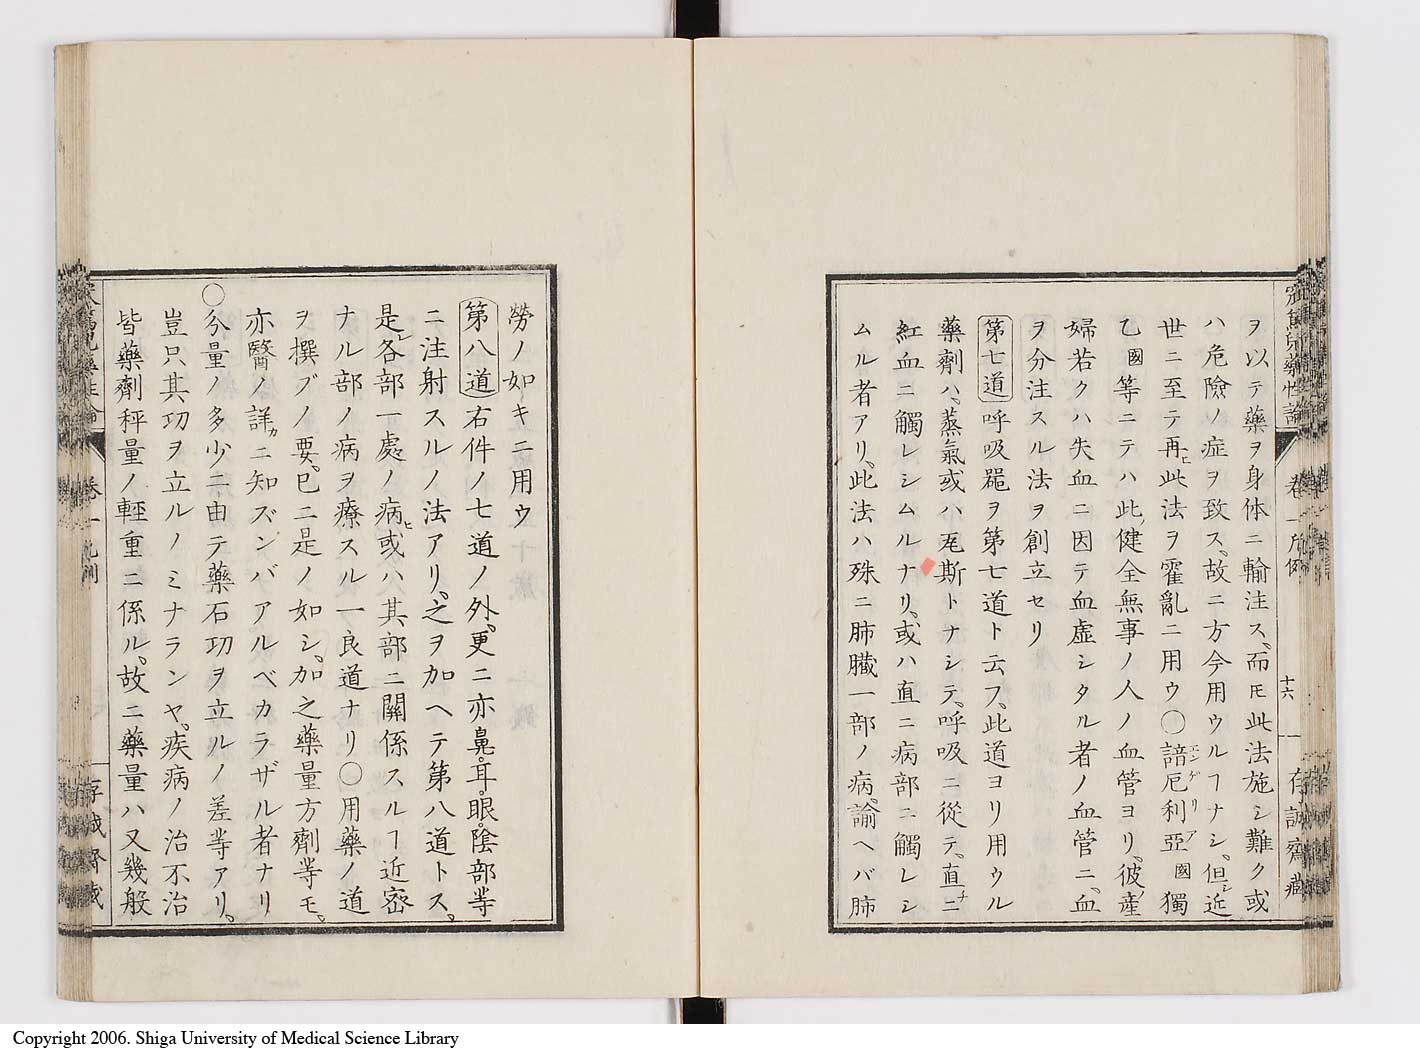 ヲ以テ藥ヲ身体ニ輸注ス、而ㇳモ此法施シ難ク或
ハ危險ノ症ヲ致ス、故ニ方今用ウルヿナシ、但シ近
世ニ至テ再ヒ此法ヲ霍亂ニ用ウ○諳厄利亞國獨
エンゲリア
乙國等ニテハ此ノ健全無事ノ人ノ血管ヨリ、彼ノ產
婦若クハ失血ニ因テ血虛シタル者ノ血管ニ、血
ヲ分注スル法ヲ創立セリ
第七道 呼吸噐ヲ第七道ト云フ、此道ヨリ用ウル
藥劑ハ、蒸氣或ハ瓦斯トナシテ、呼吸ニ從テ、直チニ
紅血ニ觸レシムルナリ、或ハ直ニ病部ニ觸レシ
ムル者アリ、此法ハ殊ニ肺臓一部ノ病、諭ヘバ肺
窊篤兒藥性論 卷一 凡例 十六 存誠齋藏
勞ノ如キニ用ウ
第八道 右件ノ七道ノ外、更ニ亦鼻、耳、眼、陰部等
ニ注射スルノ法アリ、之ヲ加ヘテ第八道トス、
是レ各部一處ノ病ヒ或ハ其部ニ關係スルヿ近密
ナル部ノ病ヲ療スル一良道ナリ○用藥ノ道
ヲ撰ブノ要、巳ニ是ノ如シ、加之藥量方劑等モ、
亦醫ノ詳カニ知ズンバアルベカラザル者ナリ
○分量ノ多少ニ由テ藥石功ヲ立ルノ差等アリ、
豈只其功ヲ立ルノミナランヤ、疾病ノ治不治
皆藥劑秤量ノ輕重ニ係ル、故ニ藥量ハ又幾般
卷一 存誠齋藏
Copyright 2006. Shiga University of Medical Science Library